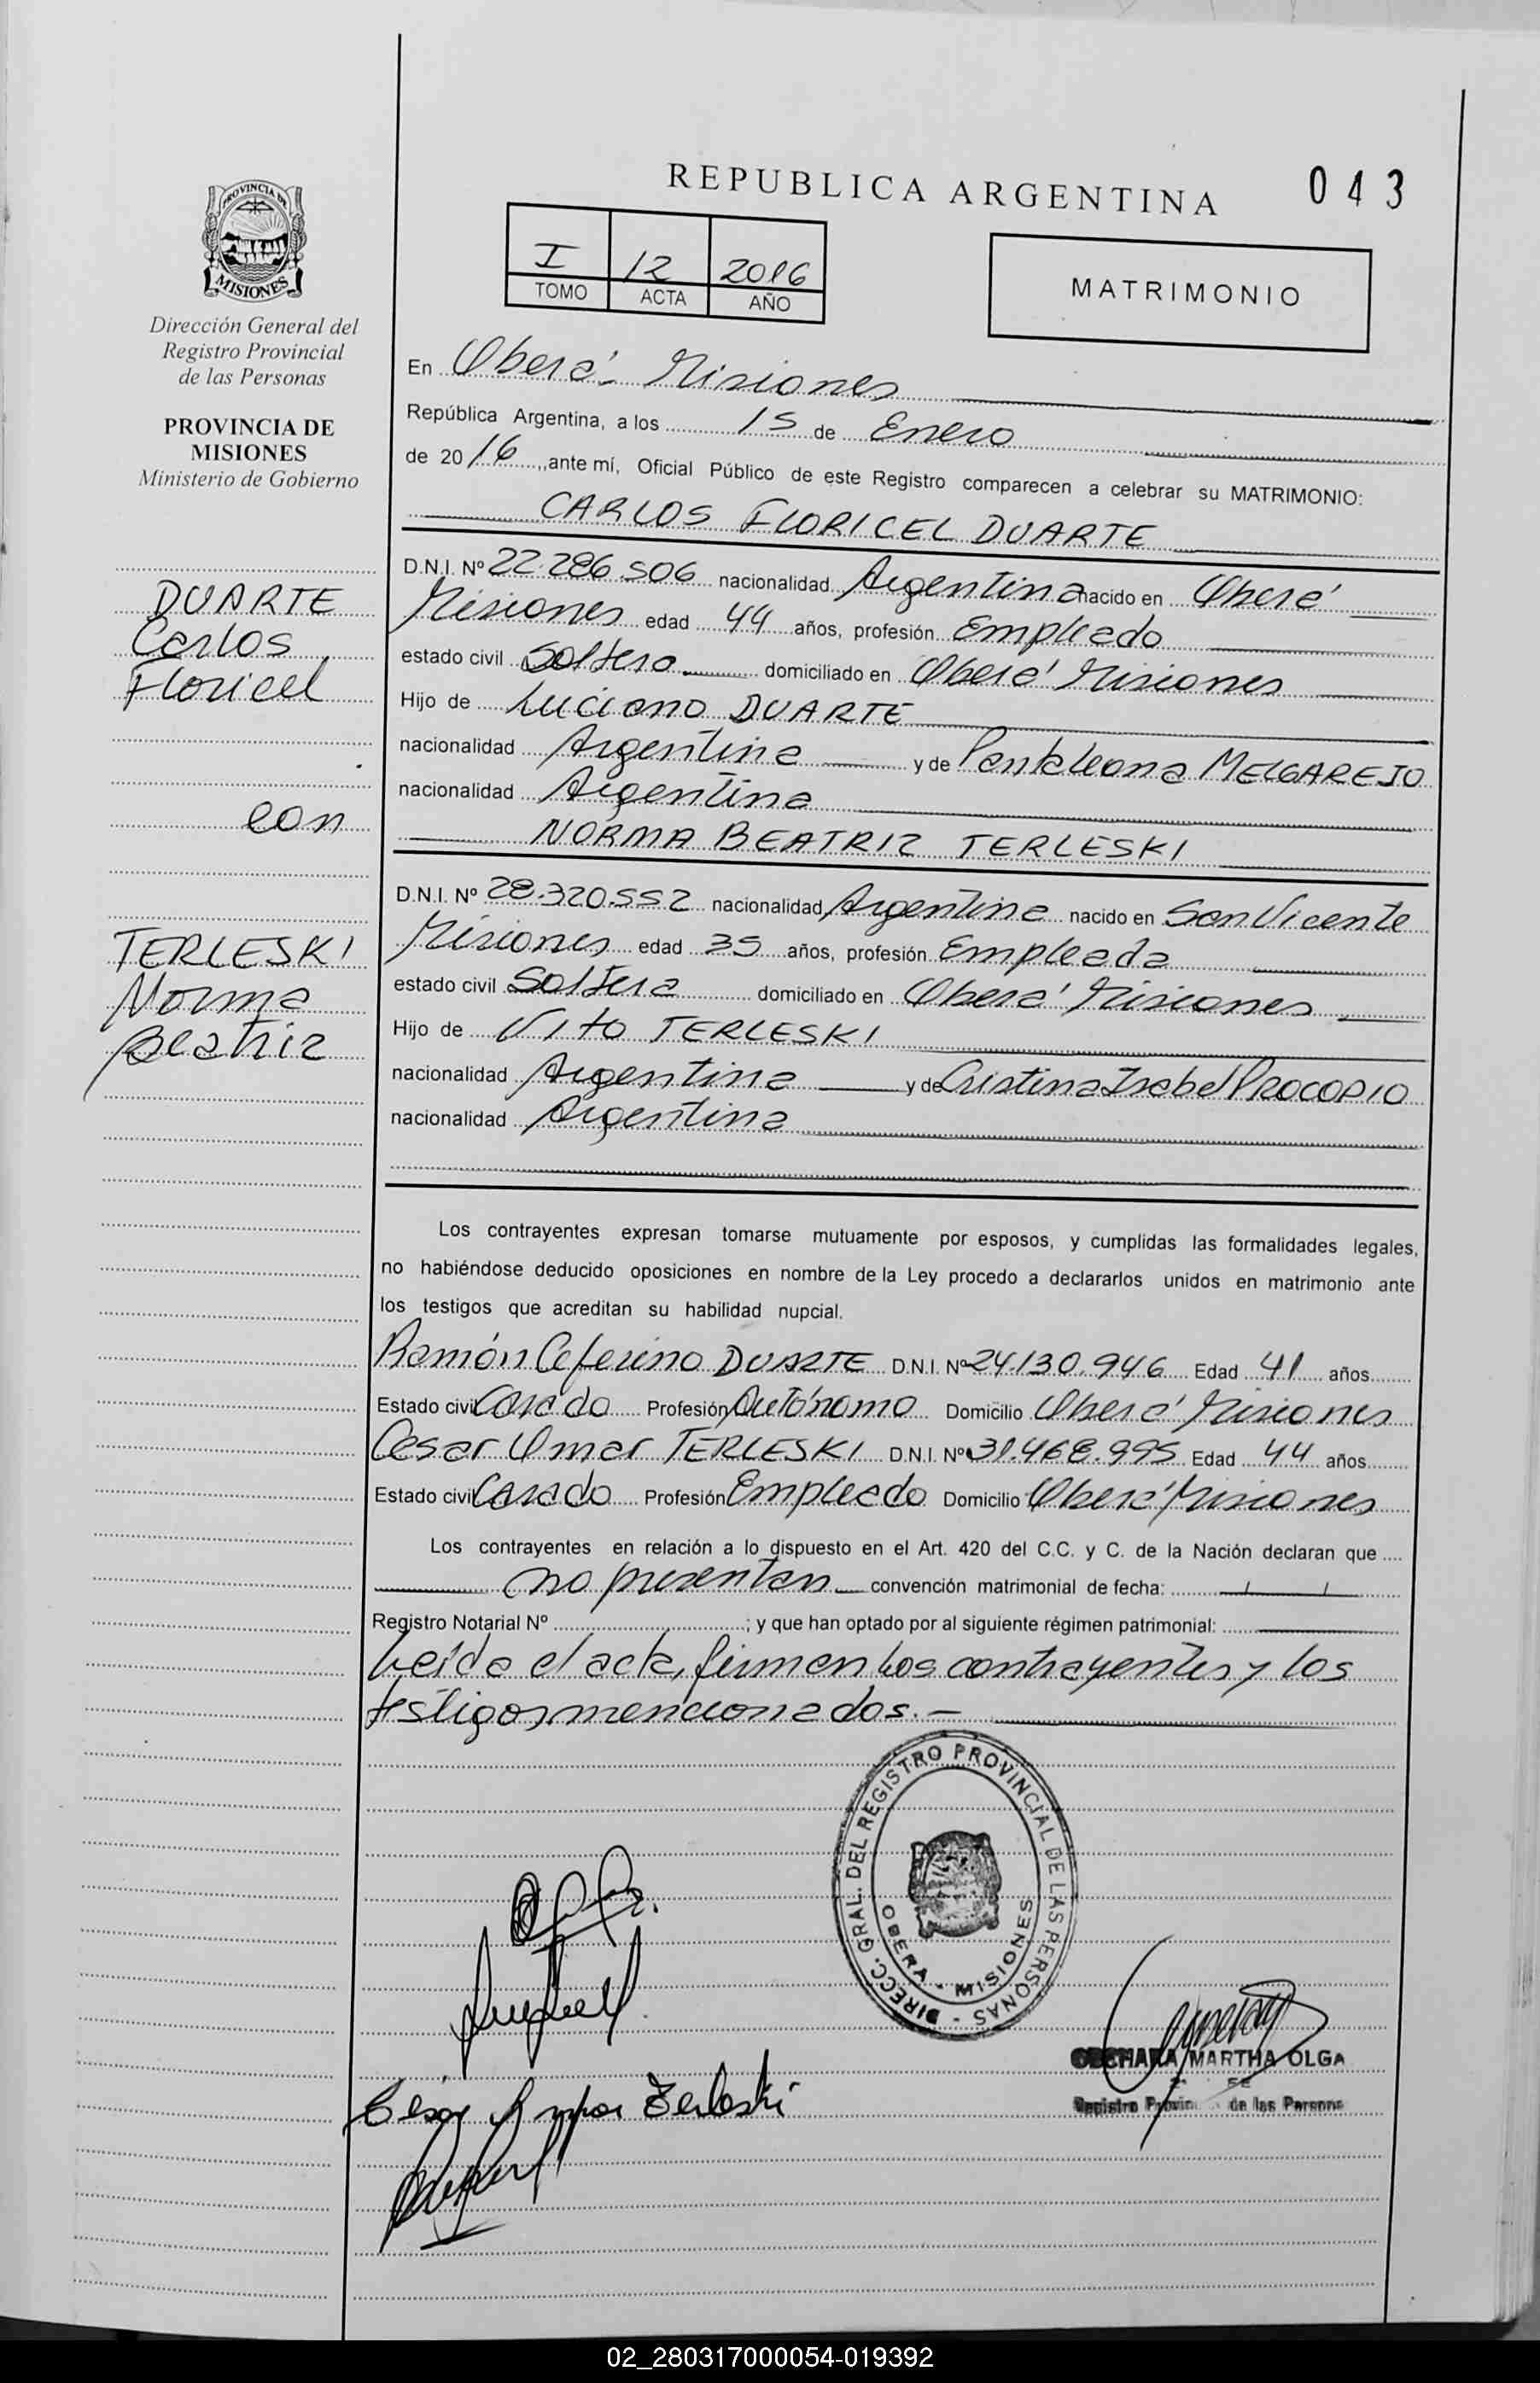 REPUBLICA ARGENTINA
043
PROVINCIA DE
MISIONES
I 12 2016
TOMO ACTA AÑO
MATRIMONIO
Dirección General del
Registro Provincial
de las Personas
PROVINCIA DE
MISIONES
Ministerio de Gobierno
DUARTE
Carlos
Floricel
con
TERLESKI
Norma
Beatriz
En Oberá - Misiones
República Argentina, a los 15 de Enero
de 2016, ante mí, Oficial Público de este Registro comparecen a celebrar su MATRIMONIO:
CARLOS FLORICEL DUARTE
D.N.I. Nº 22.286.506 nacionalidad Argentina nacido en Oberá
Misiones edad 44 años, profesión Empleado
estado civil Soltero domiciliado en Oberá Misiones
Hijo de Luciano DUARTE
nacionalidad Argentina y de Pantaleona MELGAREJO
nacionalidad Argentina
NORMA BEATRIZ TERLESKI
D.N.I. Nº 28.320.552 nacionalidad Argentina nacido en San Vicente
Misiones edad 35 años, profesión Empleada
estado civil Soltera domiciliado en Oberá Misiones
Hijo de Vito TERLESKI
nacionalidad Argentina y de Cristina Isabel PROCOPIO
nacionalidad Argentina
Los contrayentes expresan tomarse mutuamente por esposos, y cumplidas las formalidades legales,
no habiéndose deducido oposiciones en nombre de la Ley procedo a declararlos unidos en matrimonio ante
los testigos que acreditan su habilidad nupcial.
Ramón Ceferino DUARTE D.N.I. Nº 24.130.946 Edad 41 años
Estado civil Casado Profesión Autónomo Domicilio Oberá Misiones
Cesar Omar TERLESKI D.N.I. Nº 31.468.995 Edad 44 años
Estado civil Casado Profesión Empleado Domicilio Oberá Misiones
Los contrayentes en relación a lo dispuesto en el Art. 420 del C.C. y C. de la Nación declaran que
no presentan convención matrimonial de fecha: / /
Registro Notarial Nº ; y que han optado por al siguiente régimen patrimonial:
Leída el acta, firman los contrayentes y los
testigos mencionados.-
DIRECC. GRAL. DEL REGISTRO PROVINCIAL DE LAS PERSONAS -
OBERA - MISIONES
César Omar Terleski
MARTHA OLGA
Registro de las
02_280317000054-019392